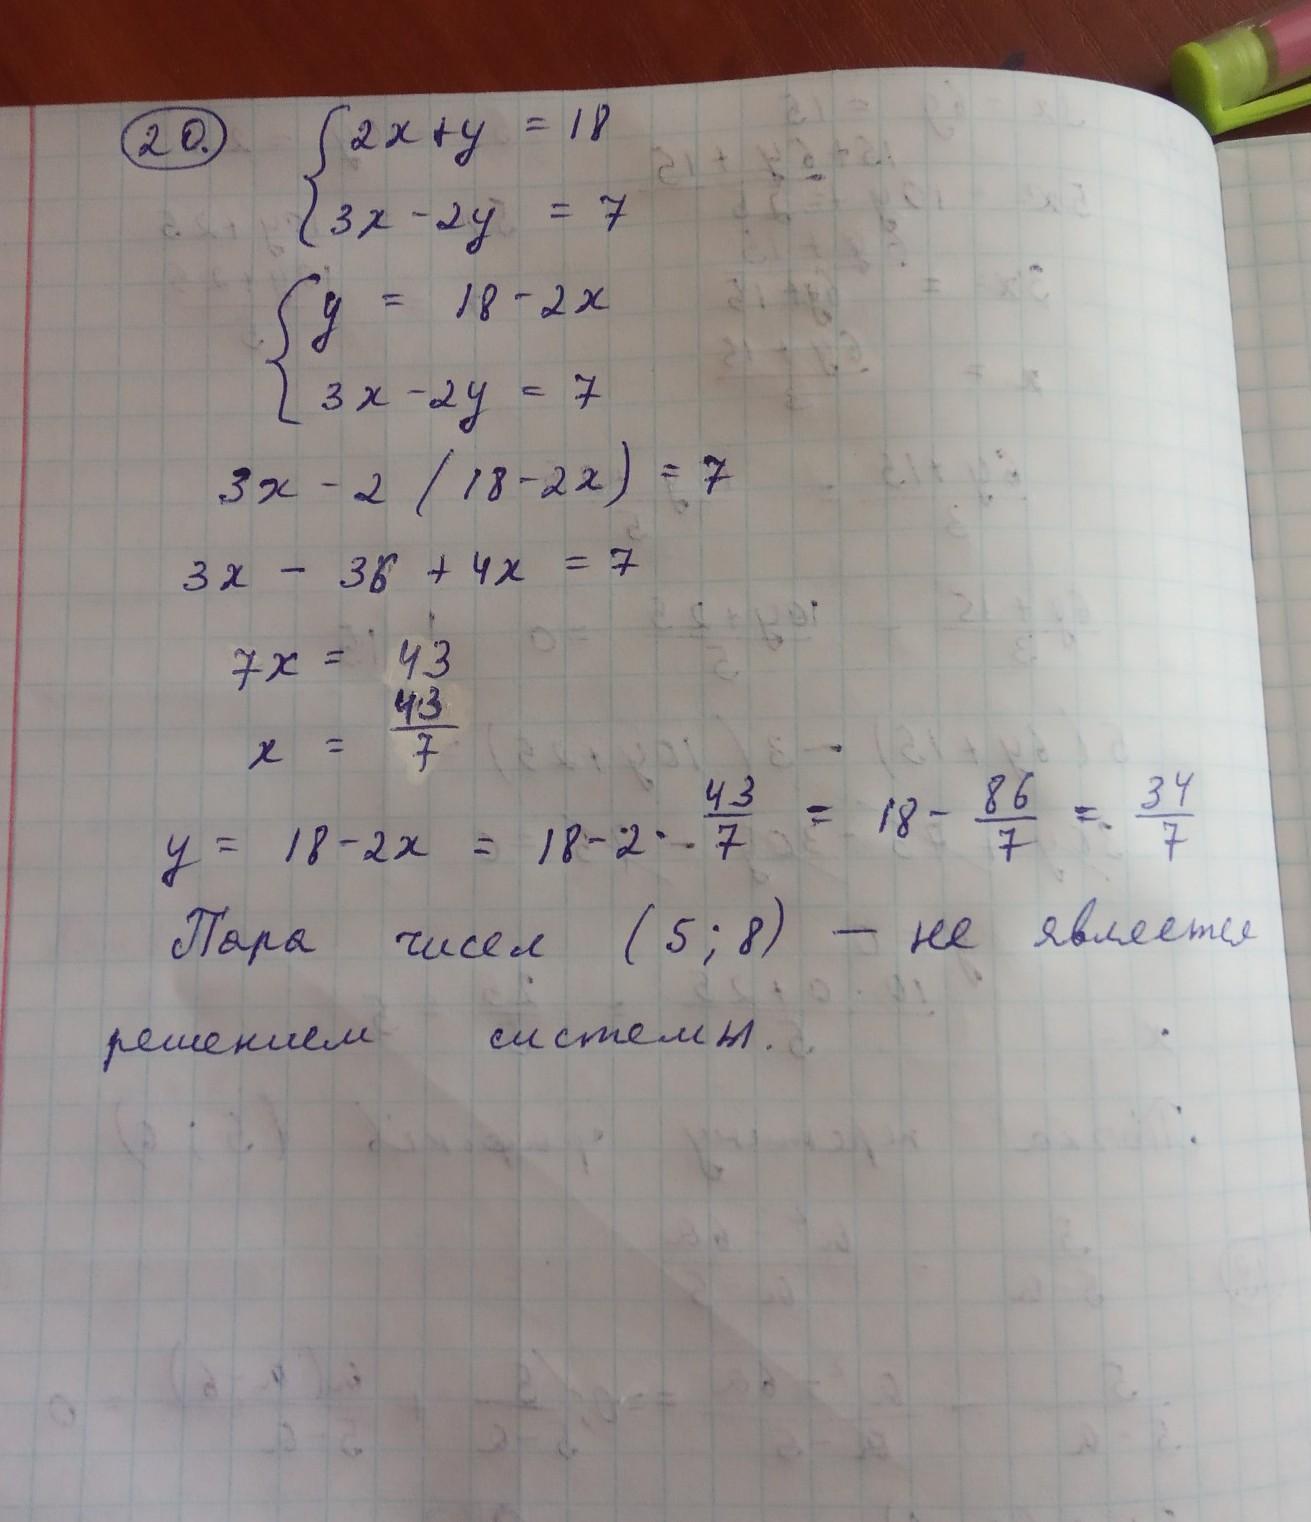 20.
2x+y = 18
3x-2y = 7
y = 18-2x
3x-2y = 7
3x - 2 (18-2x) = 7
3x - 36 + 4x = 7
7x = 43
x = 43/7
y = 18-2x = 18-2· 43/7 = 18- 86/7 = 34/7
Пара чисел (5;8) — не является
решением системы.